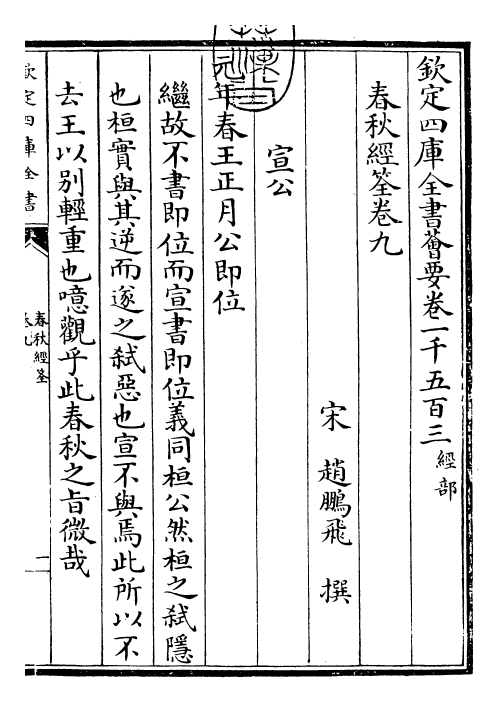 欽定四庫全書薈要卷一千五百三 經部
春秋經筌卷九
宋 趙鵬飛 撰
宣公
元年春王正月公即位
繼故不書即位而宣書即位義同桓公然桓之弒隱
也桓實與其逆而遂之弒惡也宣不與焉此所以不
去王以別輕重也噫觀乎此春秋之旨微哉
欽定四庫全書
春秋經筌
卷九
一